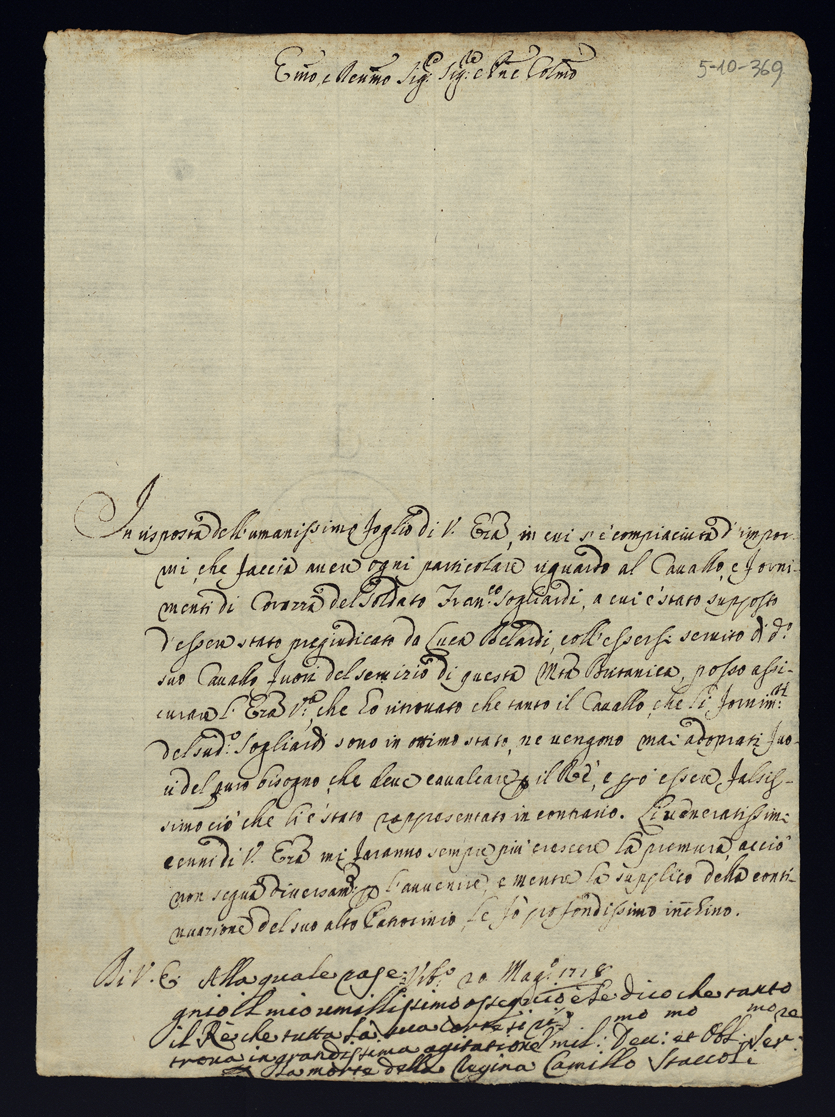 Emo, e Reumo Sig.re Sig.re e Pne Colmo
5-10-369
In risposta dell'umanissimo foglio di V. Eza, in cui s'è compiaciuta d'impor-
mi, che faccia aver ogni particolare riguardo al Cavallo, e forni-
menti di Corazza del Soldato Fran.co Sogliardi, a cui è stato supposto
d'esser stato pregiudicato da Luca Belardi, coll'essersi servito di d.o
suo Cavallo fuori del servizio di questa Mtà Britanica, posso assi-
curare l'Eza V.ra, che hò ritrovato che tanto il Cavallo, che li fornim.ti
del sud.o Sogliardi sono in ottimo stato, ne vengono mai adoprati fuo-
ri del puro bisogno, che deve cavalcare il Rè, e però esser falsis-
simo ciò che li è stato rappresentato in contrario. Li veneratissimi
cenni di V. Eza mi faranno sempre più crescere la premura, acciò
non segua diversam.te p l'avvenire, e mentre la supplico della conti-
nuazione del suo alto Patrocinio, le fò profondissimo inchino.
Di V. E. Alla quale Urb.o 20 Mag.o 1718
gnio il mio umillissimo ossequio e Le dico che tanto
il Rè che tutta la sua corte si
trova in grandissima agitatione Umil.mo Dev.mo et Obl.mo Ser.re
La morte della Regina Camillo Staccoli